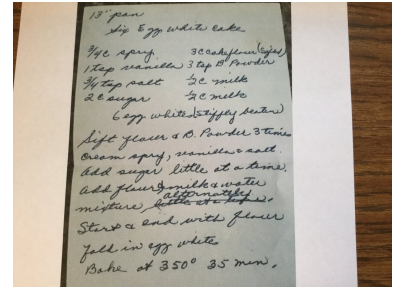 13" pan
Six Egg White Cake
3/4 C spry. 3 C Cake flour (sifted)
1 tsp vanilla 3 tsp B. Powder
3/4 tsp salt 1/2 C milk
2 C sugar 1/2 C milk
6 egg whites (stiffly beaten)
Sift flour & B. Powder 3 times
Cream spry, vanilla & salt.
Add sugar little at a time.
Add flour & milk & water
alternately
mixture little at a time.
Start & end with flour
Fold in egg whites
Bake at 350° 35 min.